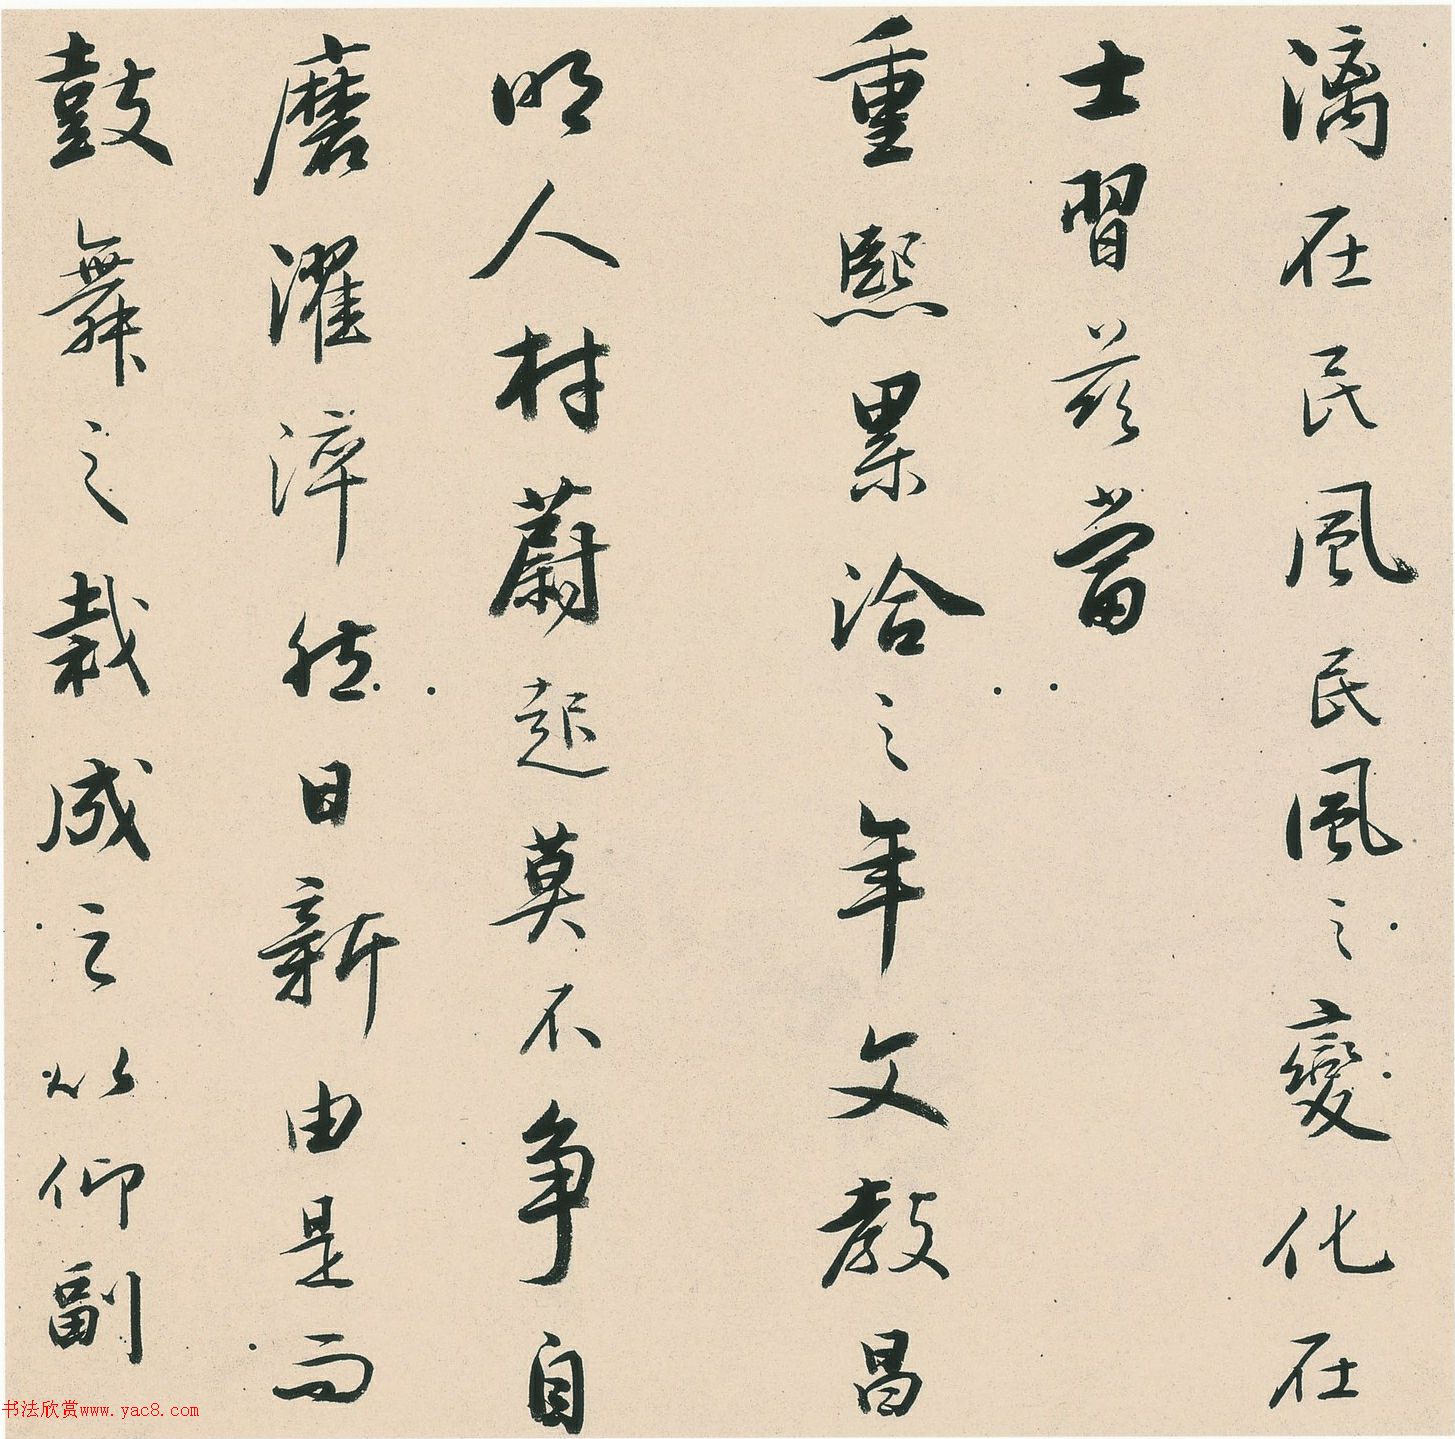 漓在民風民風之變化在
士習茲當
重熙累洽之年文教昌
明人材蔚起莫不争自
磨濯淬然日新由是而
鼓舞之栽成之以仰副
书法欣赏www.yac8.com